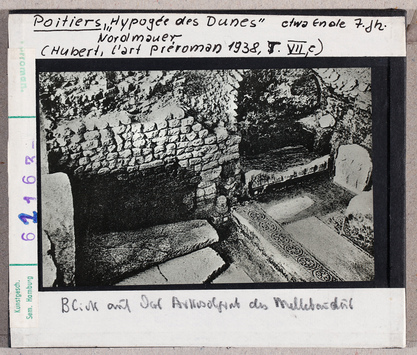 Poitiers, „Hypogée des Dunes" etwa Ende 7. Jh.
Nordmauer
(Hubert, l'art préroman 1938, T. VII, c)
62168
Kunstgesch.
Sem. Hamburg
Blick auf das des